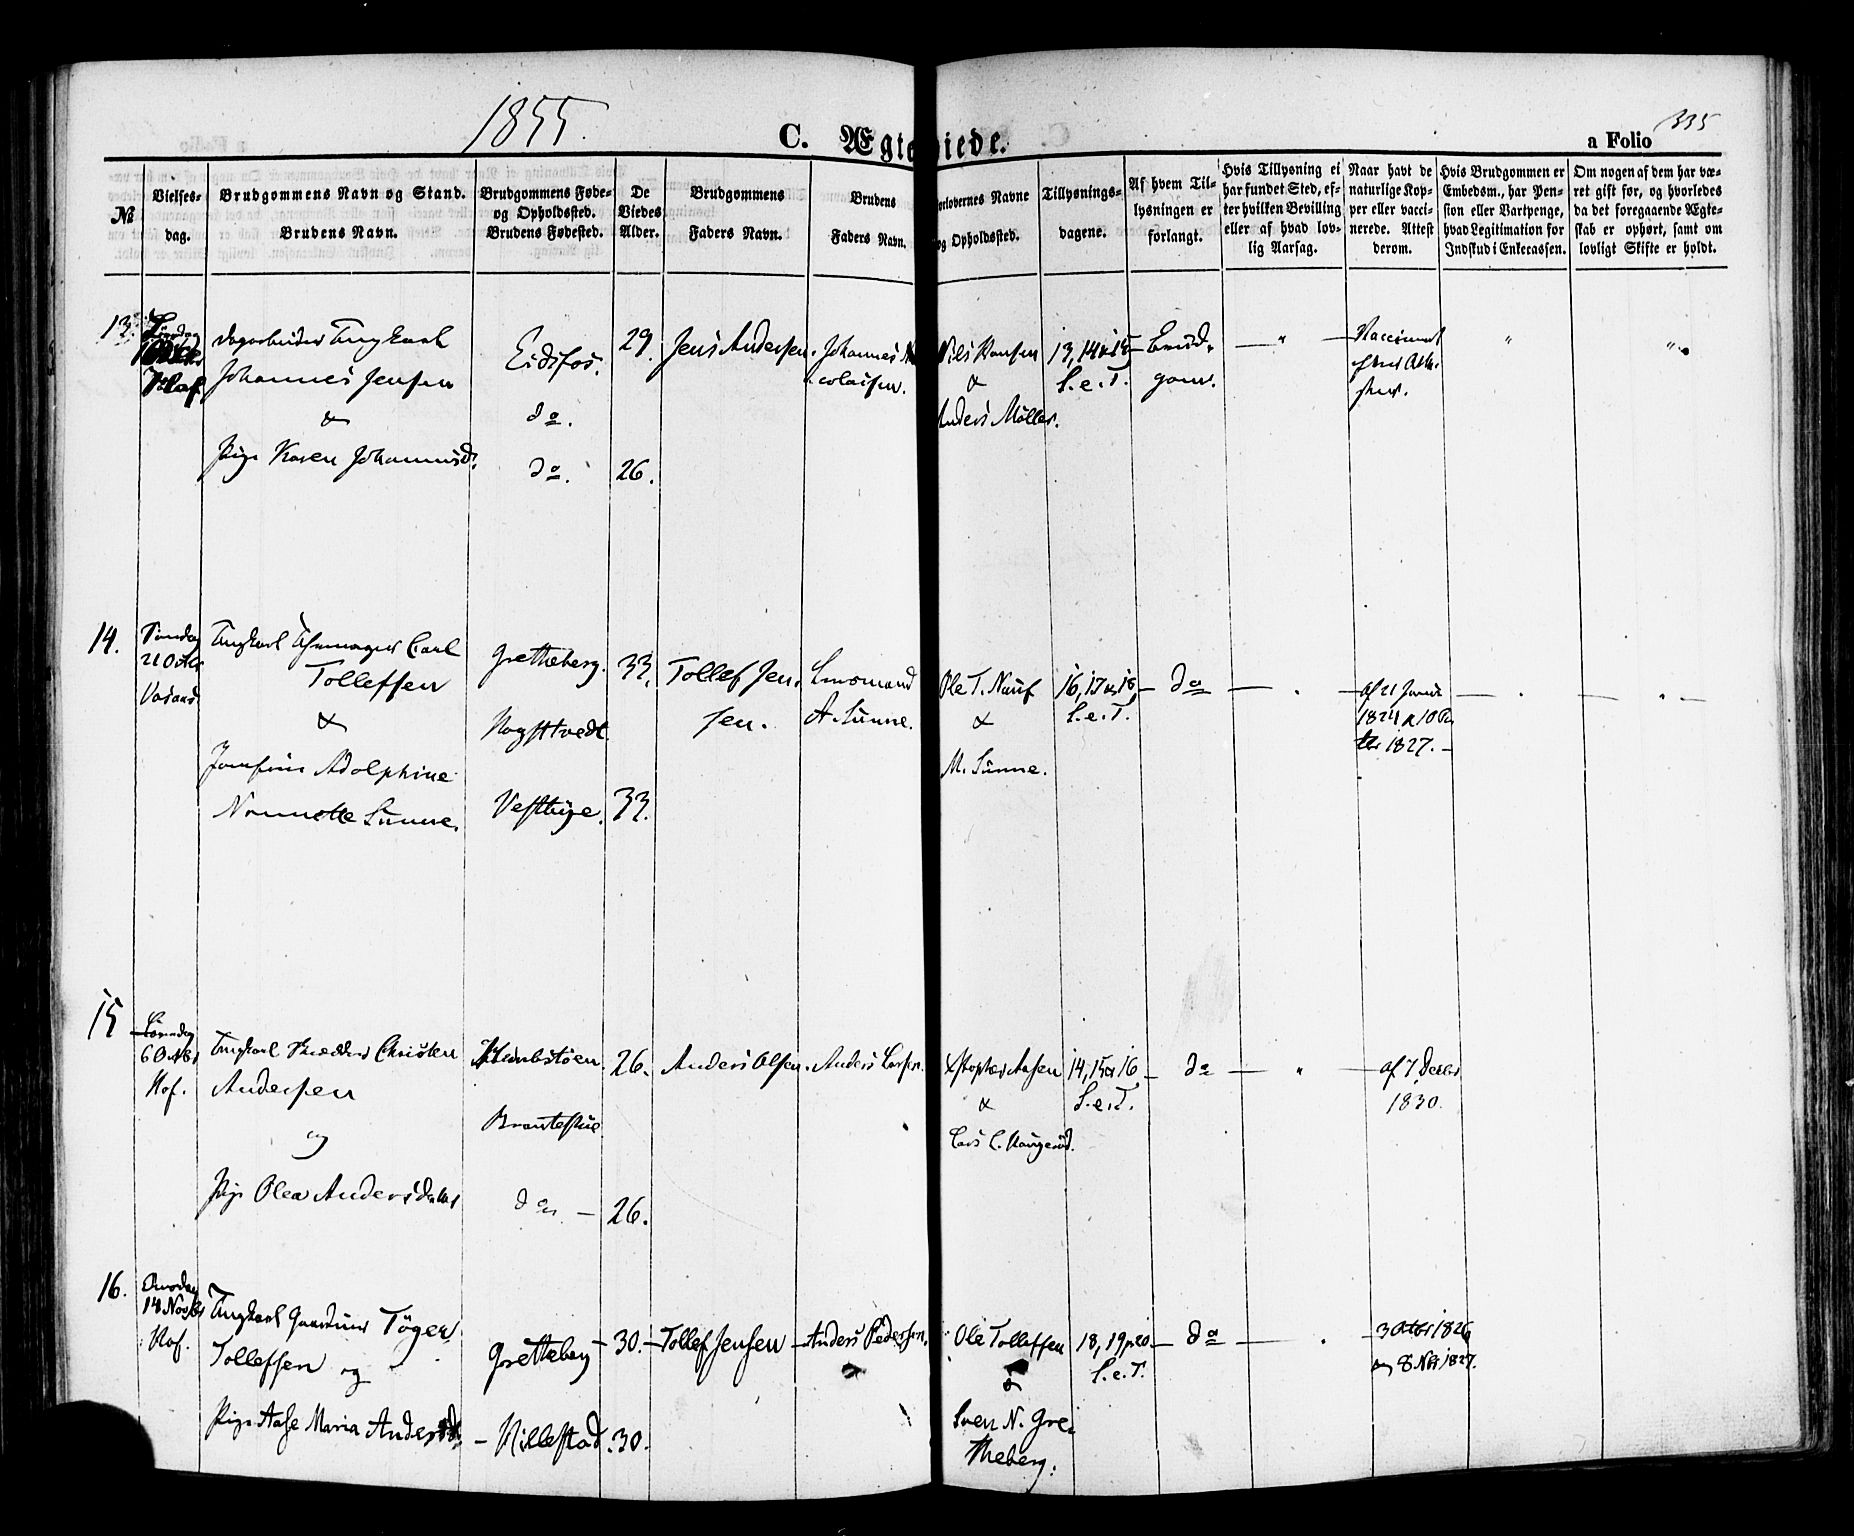 1855.
C. Ægteviede.
335
a Folio
№
Vielses-
dag.
Brudgommens Navn og Stand.
Brudens Navn.
Brudgommens Føde-
og Opholdssted.
Brudens Fødested.
De
Viedes
Alder.
Brudgommens
Faders Navn.
Brudens
Faders Navn.
orlovernes Navne
og Opholdssted.
Tillysnings-
dagene.
Af hvem Til-
lysningen er
forlangt.
Hvis Tillysning ei
har fundet Sted, ef-
ter hvilken Bevilling
eller af hvad lov-
lig Aarsag.
Naar havt de
naturlige Kop-
per eller vacci-
nerede. Attest
derom.
Hvis Brudgommen er
Embedsm., har Pen-
sion eller Vartpenge,
hvad Legitimation for
Indskud i Enkecassen.
Om nogen af dem har væ-
ret gift før, og hvorledes
da det foregaaende Ægte-
skab er ophørt, samt om
lovligt Skifte er holdt.
13.
Hof
Dagarbeider Ungkarl
Johannes Jensen
&
Pige Karen Johannesd.
Eidsfos.
do.
do.
29.
26.
Jens Andersen.
Johannes Ni
colaisen.
Nils Hansen
&
Anders Möller.
13, 14 & 15
S. e. T.
Brud-
gom.
"
"
"
14.
Søndag
21 Octbr
Vasaas
Ungkarl Carl
Tollefsen
&
Josefine Adolphine
Nannette Sunne.
Gretteberg.
Hogstvedt
Vesthuge.
33.
33.
Tollef Jen-
sen.
Lensmand
A. Sunne.
Ole T. Nauf
&
M. Sunne.
16, 17 og 18
S. e. T.
do
af 21 Junii
1824 & 10
1827.
15
Løverdag
6 Octbr
Hof.
Ungkarl Skrædder Christen
Andersen
og
Pige Olea Andersdatter
do
26.
26.
Anders Olsen.
Anders Larsen.
Aasen
&
Lars L. Haugerød.
14, 15 & 16
S. e. T.
do
"
af 7 Decbr
1830.
16.
Onsdag
14 Novbr
Hof.
Ungkarl Töger
Tollefsen og
Pige Aase Maria Andersd.
Gretteberg
Hillestad.
30.
30.
Tollef Jensen
Anders Pedersen.
Ole Tollefsen
&
Sven N. Gre-
theberg.
18, 19 & 20
S. e. T.
do
3 Octbr 1826
og 8 Nbr 1827.